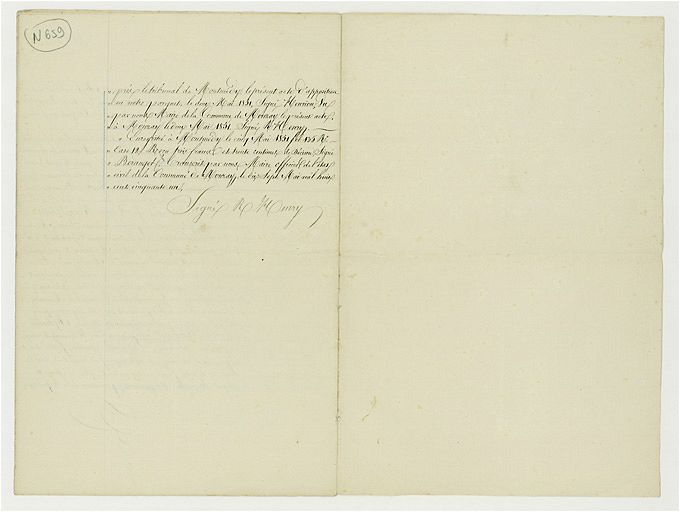 N 659
« près le tribunal de Montmédy le présent acte d'apposition
« en notre parquet, le deux Mai 1851, Signé Henrion. Vu
« par nous Maire de la Commune de Mouzay le présent acte,
« à Mouzay le deux Mai 1851, Signé R. Henry,
« Enregistré à Montmédy le cinq Mai 1851 f° 135 R°
« Case 12, Reçu trois francs et trente centimes, de décime, Signé
« Béranger, Transcrit par nous, Maire officier de l'état
« civil de la Commune de Mouzay, le dix Sept Mai mil huit
« cent cinquante un,
Signé R Henry